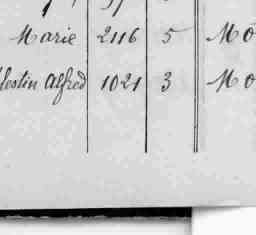 Marie 2116 5 Mo
lestin Alfred 1021 3 Mo